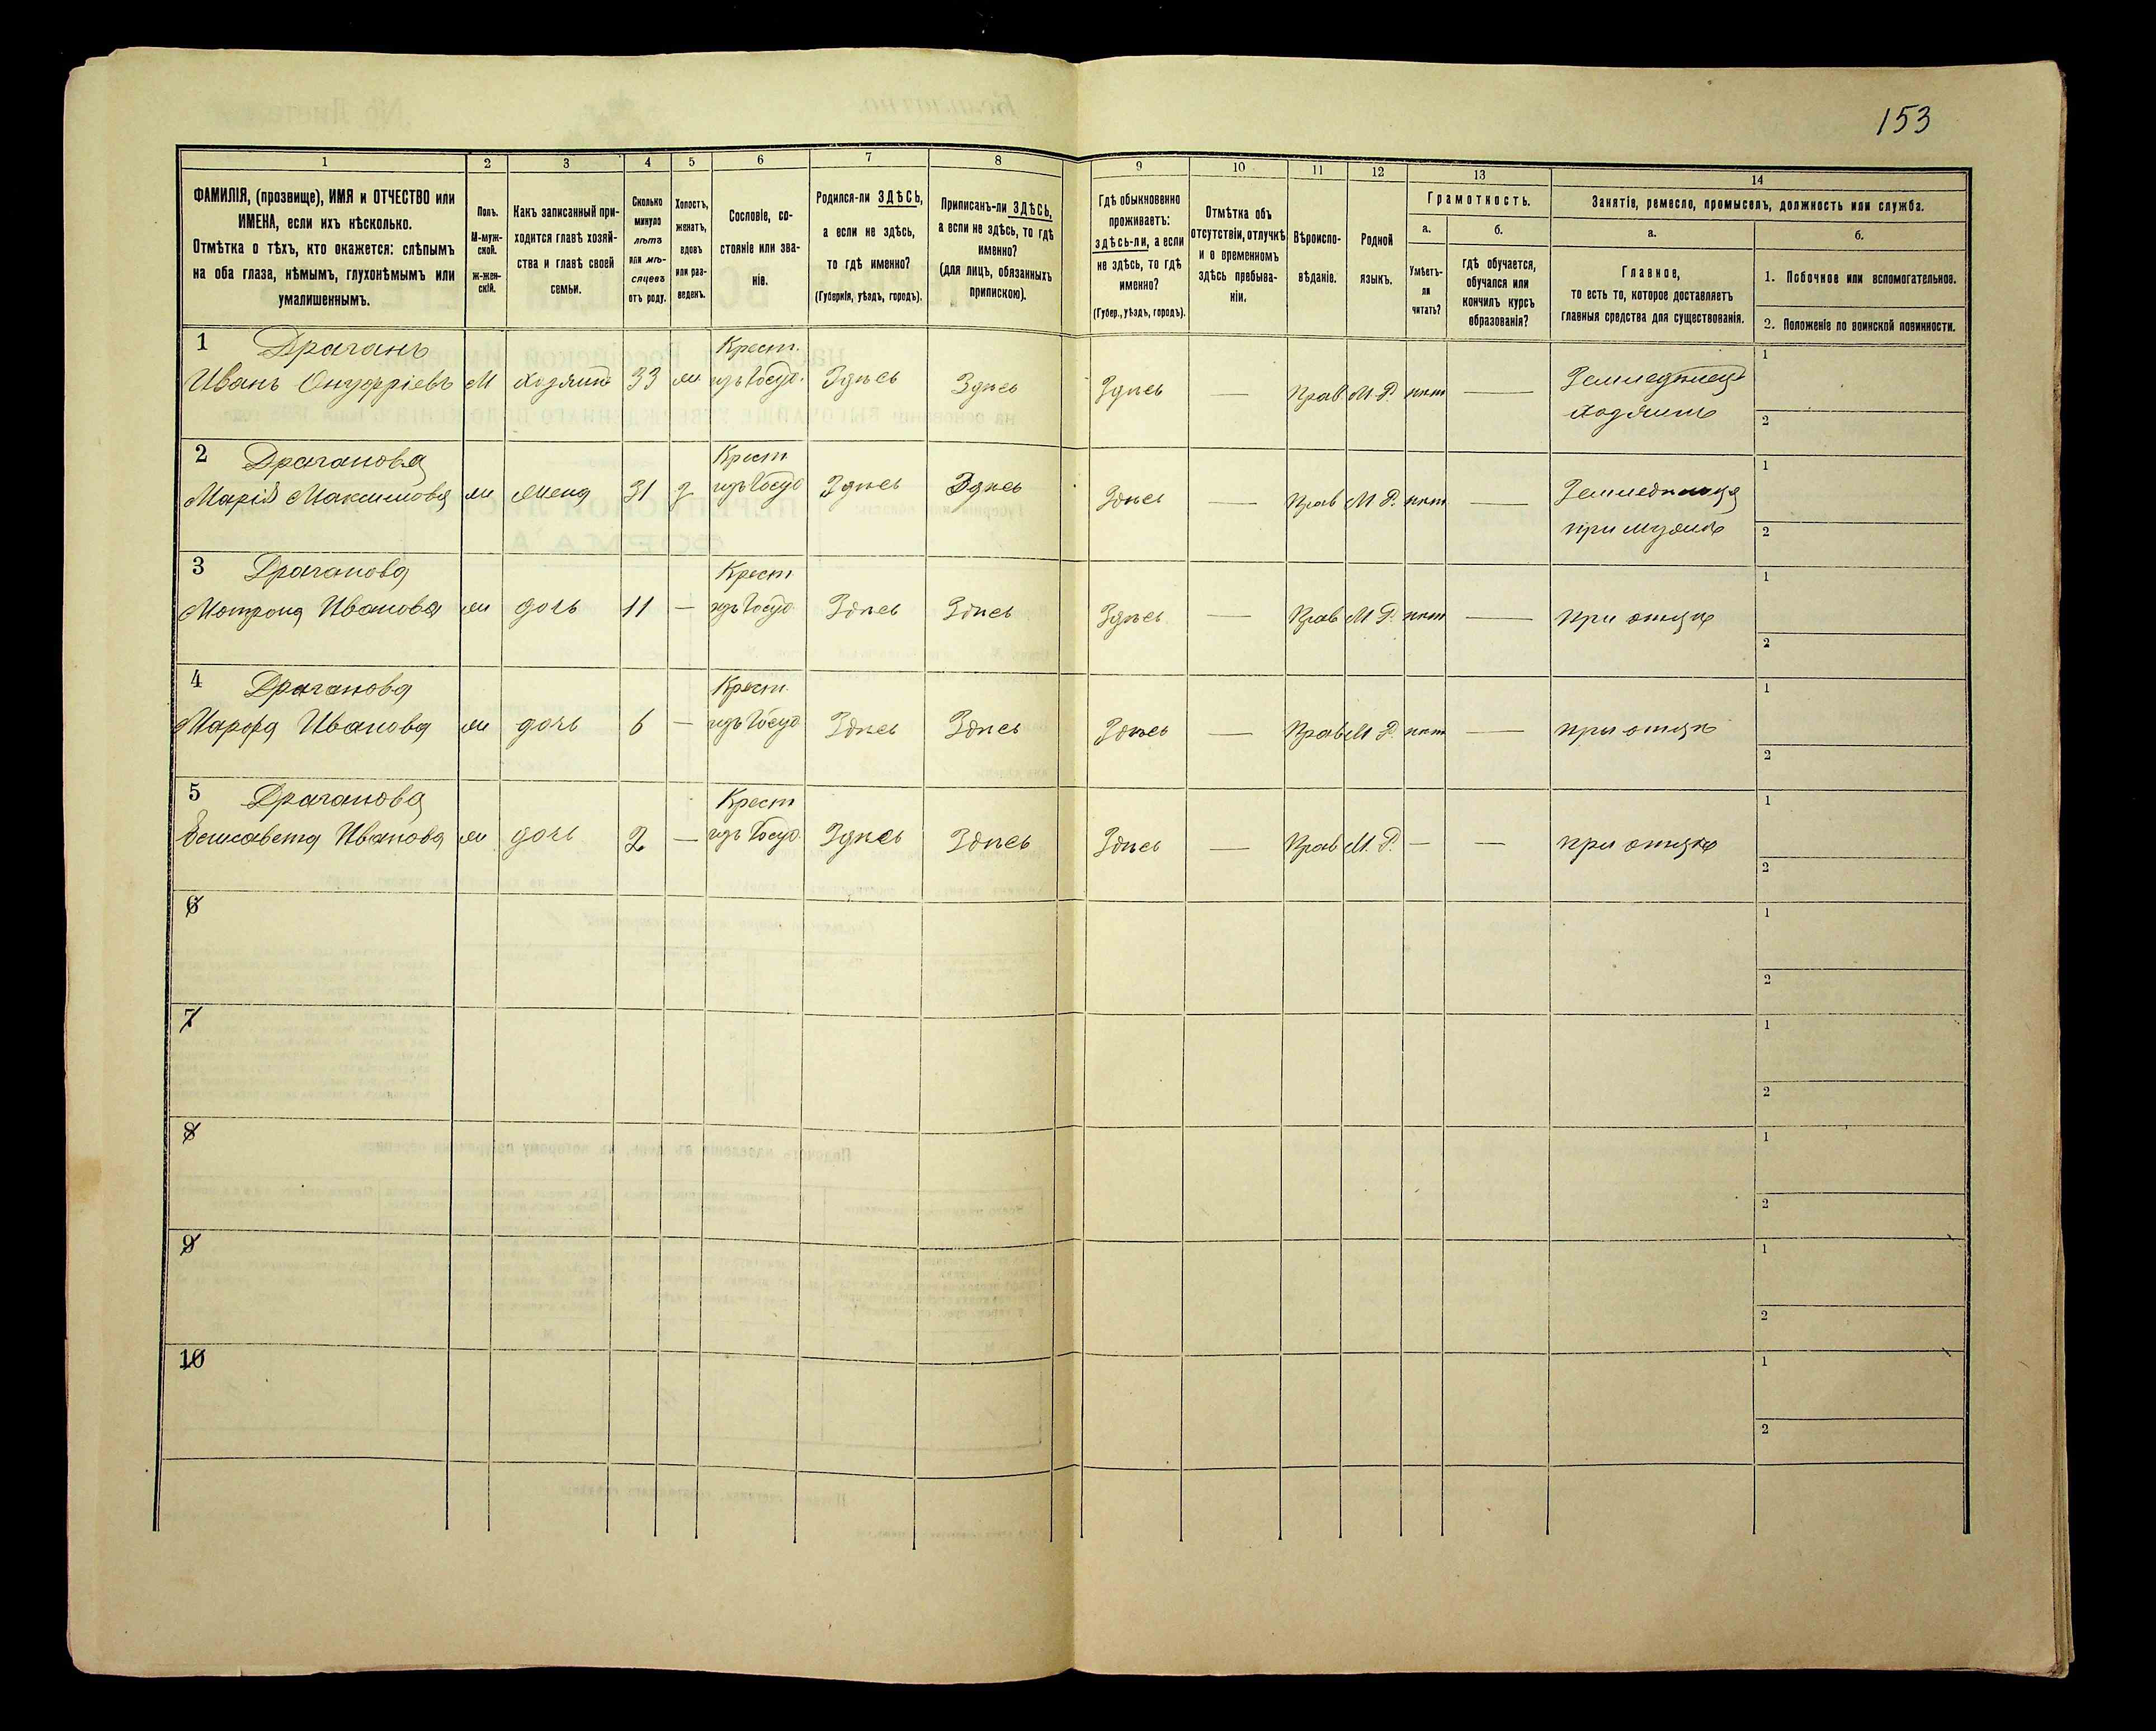 153
1
2
3
4
5
6
7
8
9
10
11
12
13
14
ФАМИЛІЯ, (прозвище), ИМЯ и ОТЧЕСТВО или
ИМЕНА, если ихъ нѣсколько.
Отмѣтка о тѣхъ, кто окажется: слѣпымъ
на оба глаза, нѣмымъ, глухонѣмымъ или
умалишеннымъ.
Полъ.
М-муж-
ской.
ж-жен-
скій.
Какъ записанный при-
ходится главѣ хозяй-
ства и главѣ своей
семьи.
Сколько
минуло
лѣтъ
или мѣ-
сяцевъ
отъ роду.
Холостъ,
женатъ,
вдовъ
или раз-
веденъ.
Сословіе, со-
стояніе или зва-
ніе.
Родился-ли ЗДѢСЬ,
а если не здѣсь,
то гдѣ именно?
(Губернія, уѣздъ, городъ).
Приписанъ-ли ЗДѢСЬ,
а если не здѣсь, то гдѣ
именно?
(для лицъ, обязанныхъ
припискою).
Гдѣ обыкновенно
проживаетъ:
здѣсь-ли, а если
не здѣсь, то гдѣ
именно?
(Губер., уѣздъ, городъ).
Отмѣтка объ
отсутствіи, отлучкѣ
и о временномъ
здѣсь пребыва-
ніи.
Вѣроиспо-
вѣданіе.
Родной
языкъ.
Грамотность.
а.
Умѣетъ-
ли
читать?
б.
гдѣ обучается,
обучался или
кончилъ курсъ
образованія?
Занятіе, ремесло, промыселъ, должность или служба.
а.
Главное,
то есть то, которое доставляетъ
главныя средства для существованія.
б.
1. Побочное или вспомогательное.
2. Положеніе по воинской повинности.
1 Драганъ Крест. 1
Иванъ Онуфріевъ М хозяинъ 33 ж изъ Госуд. Здѣсь Здѣсь Здѣсь — Прав М.Р. нѣт — Земледѣлецъ
хозяинъ 2
2 Драганова Крест 1
Марія Максимова ж жена 31 з изъ Госуд Здѣсь Здѣсь Здѣсь — Прав М.Р. нѣт — Земледѣлица
при мужѣ 2
3 Драганова Крест 1
Мотрона Иванова ж дочь 11 — изъ Госуд Здѣсь Здѣсь Здѣсь — Прав М.Р. нѣт — при отцѣ
2
4 Драганова Крест. 1
Марфа Иванова ж дочь 6 — изъ Госуд Здѣсь Здѣсь Здѣсь — Прав М.Р. нѣт — при отцѣ
2
5 Драганова Крест 1
Елисавета Иванова ж дочь 2 — изъ Госуд. Здѣсь Здѣсь Здѣсь — Прав М.Р. — — при отцѣ
2
6 1
2
7 1
2
8 1
2
9 1
2
10 1
2